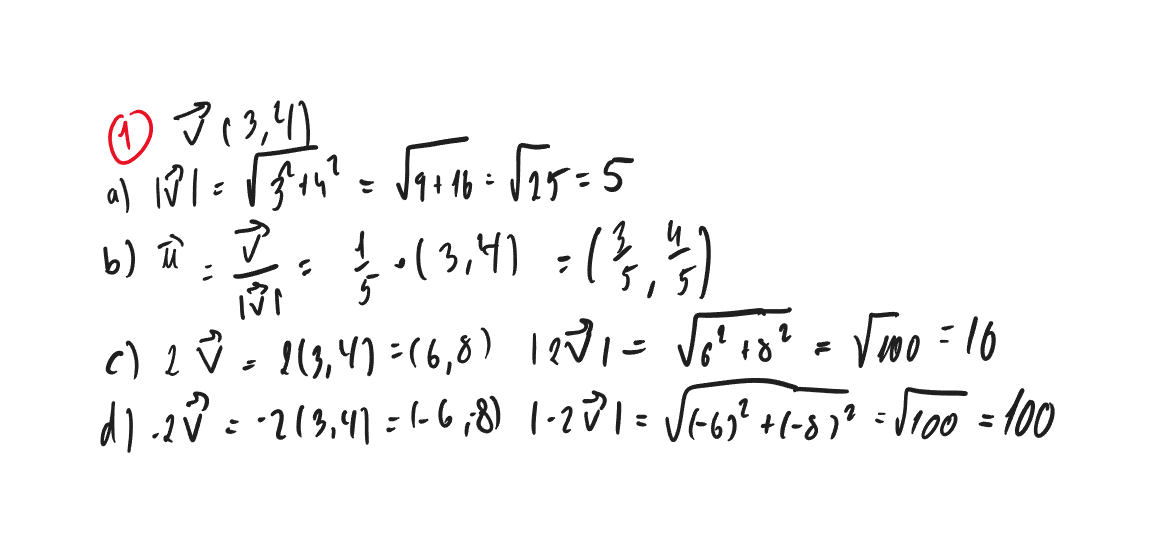 ① v⃗ (3,4)
a) |v⃗| = √(3²+4²) = √(9+16) = √25 = 5
b) u⃗ = v⃗/|v⃗| = 1/5 · (3,4) = (3/5, 4/5)
c) 2 v⃗ = 2(3,4) = (6,8) |2v⃗| = √(6²+8²) = √100 = 10
d) -2v⃗ = -2(3,4) = (-6,-8) |-2v⃗| = √((-6)²+(-8)²) = √100 = 100